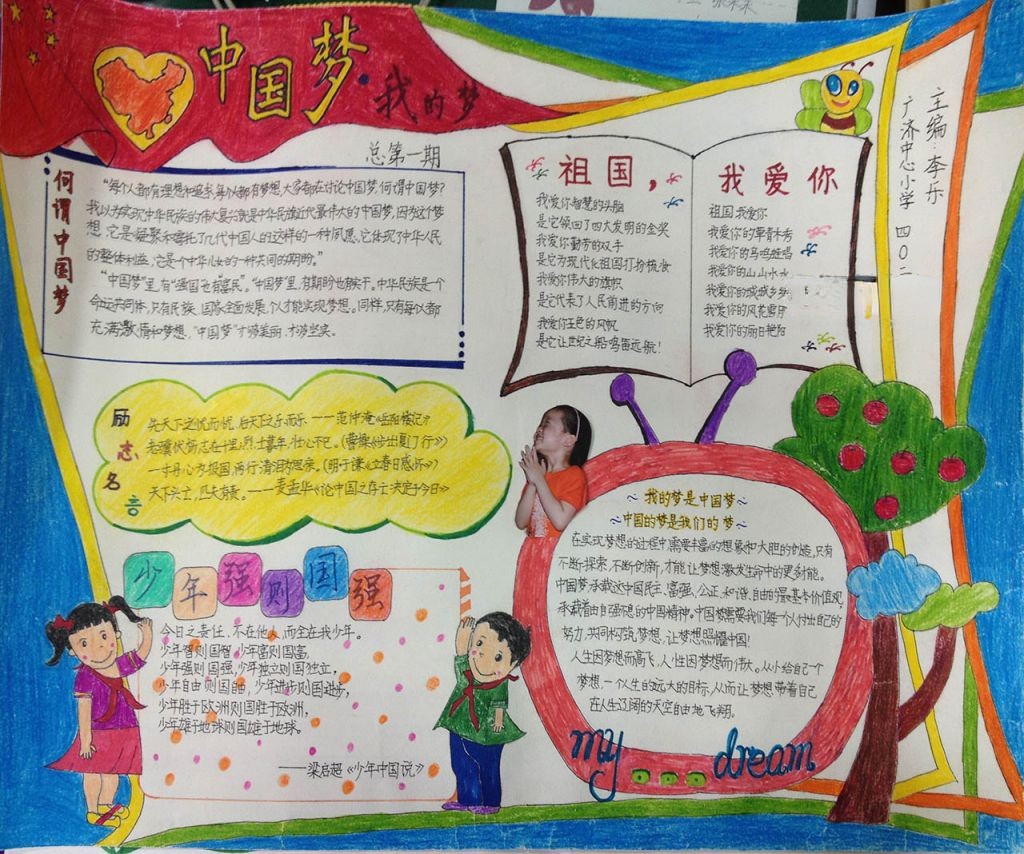 中国梦·我的梦
总第一期
主编:李乐
广济中心小学 四〇二
何谓中国梦
“每个人都有理想和追求,每个人都有梦想,大家都在讨论中国梦,何谓中国梦?
我以为实现中华民族的伟大复兴就是中华民族近代最伟大的中国梦,因为这个梦
想,它是凝聚和寄托了几代中国人的这样的一种夙愿,它体现了中华人民
的整体利益,它是个中华儿女的一种共同的期盼。”
“中国梦”里,有“强国”也有“富民”。“中国梦”里,有期盼也有实干。中华民族是个
命运共同体,只有民族、国家全面发展,个人才能实现梦想。同样,只有每个人都
充满激情和梦想,“中国梦”才够美丽,才够坚实。
祖国,
我爱你智慧的头脑
是它领回了四大发明的金奖
我爱你勤劳的双手
是它为现代化祖国打扮梳妆
我爱你伟大的旗帜
是它代表了人民前进的方向
我爱你五色的风帆
是它让世纪之船鸣笛远航!
我爱你
祖国我爱你
我爱你的草青木秀
我爱你的鸟鸣蛙唱
我爱你的山山水水
我爱你的城城乡乡
我爱你的风花雪月
我爱你的丽日艳阳
励志名言
先天下之忧而忧,后天下之乐而乐——范仲淹《岳阳楼记》
老骥伏枥,志在千里;烈士暮年,壮心不已。(曹操《步出夏门行》)
一片丹心为报国,两行清泪为思亲。(明于谦《立春日感怀》)
天下兴亡,匹夫有责。——麦孟华《论中国之存亡决定于今日》
少年强则国强
今日之责任,不在他人,而全在我少年。
少年智则国智,少年富则国富,
少年强则国强,少年独立则国独立,
少年自由则国自由,少年进步则国进步,
少年胜于欧洲则国胜于欧洲,
少年雄于地球则国雄于地球。
——梁启超《少年中国说》
~我的梦是中国梦~
~中国的梦是我们的梦~
在实现梦想的过程中,需要丰富的想象和大胆的创造,只有
不断探索,不断创新,才能让梦想激发生命中的更多可能。
中国梦承载这中国民主、富强、公正、和谐、自由的最基本价值观,
承载着由自强不息的中国精神。中国梦需要我们每个人付出自己的
努力,共同构筑梦想,让梦想照耀中国!
人生因梦想而高飞,人性因梦想而伟大。从小给自己一个
梦想,一个人生的远大的目标,从而让梦想带着自己
在人生辽阔的天空自由地飞翔。
my dream